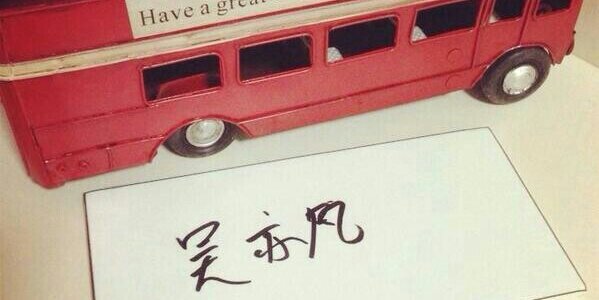 Have a great
吴亦风